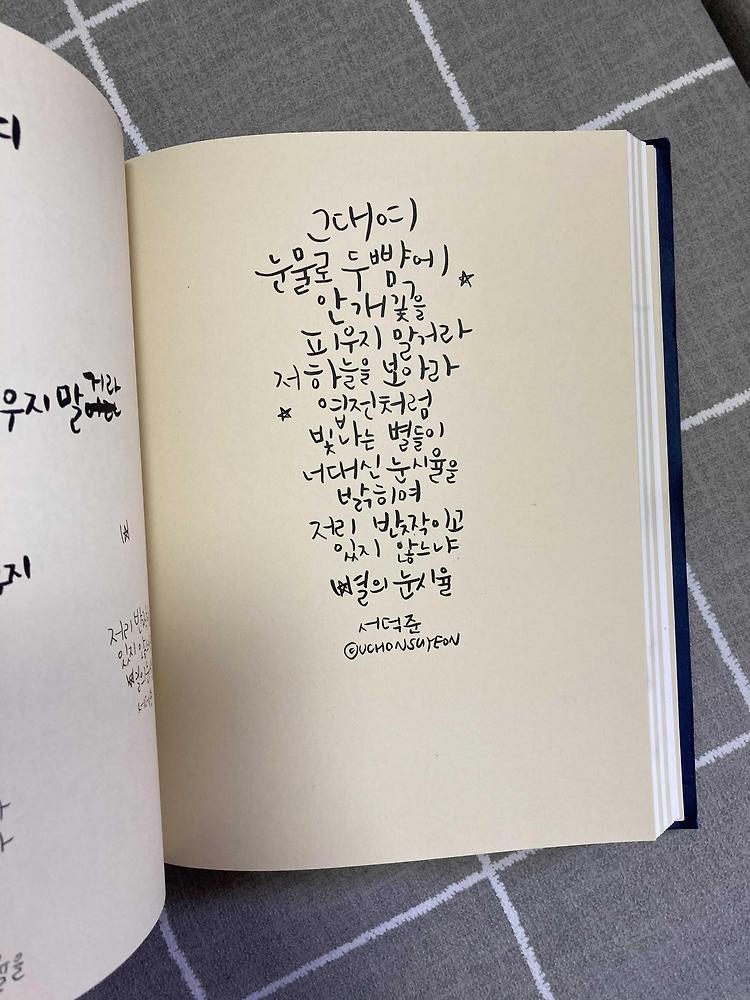 우지 말거라
우지
저리 반짝
있지 않
별의 눈
그대여
눈물로 두 뺨에
안개꽃을
피우지 말거라
저 하늘을 보아라
엽전처럼
빛나는 별들이
너 대신 눈시울을
밝히며
저리 반짝이고
있지 않느냐
별의 눈시울
서덕준
©UCHONSUYEON